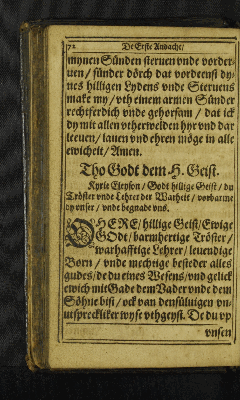 72 De Erste Andacht/
mynen Sünden steruen vnde vorder-
uen / sünder dörch dat vordeenst dy-
nes hilligen Lydens vnde Steruens
make my / vth einem armen Sünder
rechtferdich vnde gehorsam / dat ick
dy mit allen vtherwelden hyr vnd dar
leeuen / lauen vnd ehren möge in alle
ewicheit / Amen.
Tho Godt dem H. Geist.
Kyrie Eleyson / Godt hillige Geist / du
Tröster vnde Lehrer der Warheit / vorbarme
dy vnser / vnde begnade vns.
O HERE / hillige Geist / Ewige
GOdt / barmhertige Tröster /
warhafftige Lehrer / leuendige
Born / vnde mechtige besteder alles
gudes / de du eines Wesens / vnd gelick
ewich mit Gade dem Vader vnde dem
Söhne bist / ock van densüluigen vn-
uthspreckliker wyse vthgeyst. De du vp
vnsen